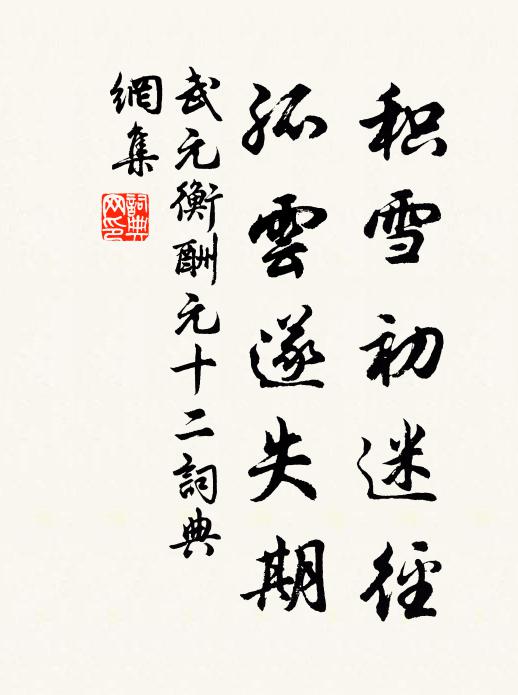 积雪初迷径
孤雲遂失期
武元衡酬元十二詞典
網集
詞典網印